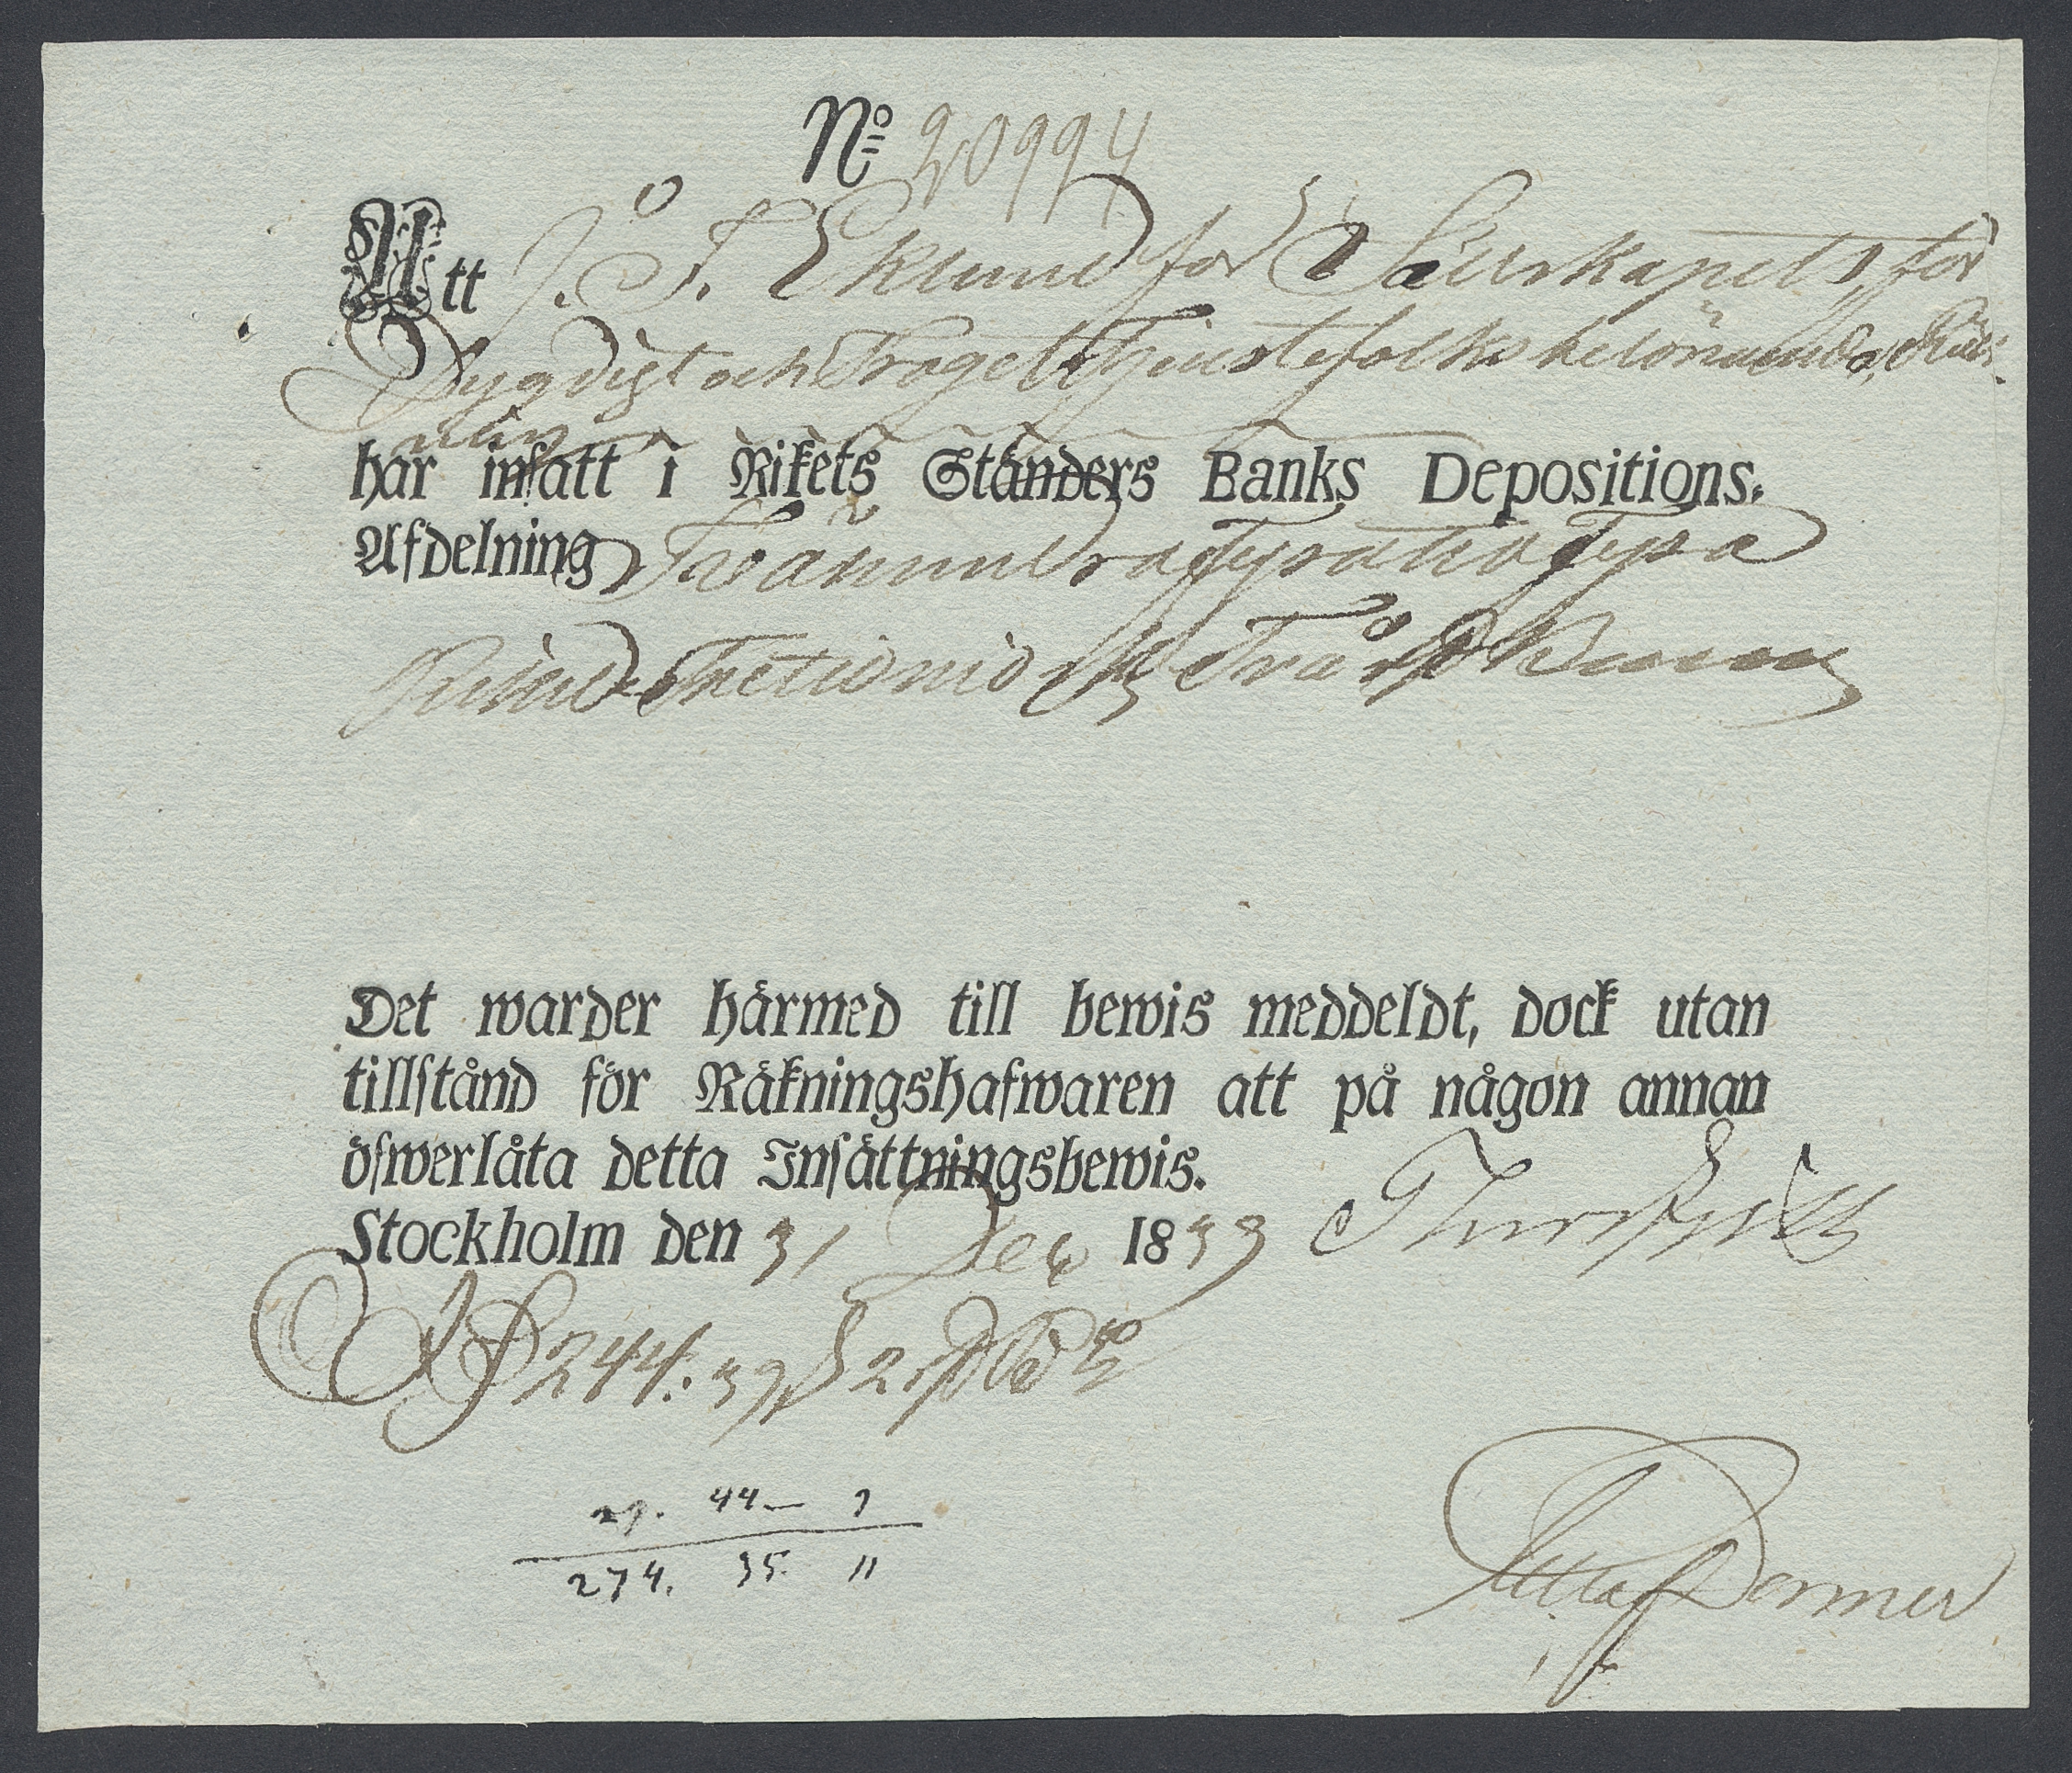 No 20994
Att J. F. Eklund för Sällskapets, för
Dygdigt och Troget Tjenstefolks belönande, Räk-
ning
har insatt i Rikets Ständers Banks Depositions-
Afdelning Tvåhundrafyratiofyra
Riksd Trettionio s Två rs Banco
Det warder härmed till bewis meddeldt, dock utan
tillstånd för Räkningshafwaren att på någon annan
öfwerlåta detta Insättningsbewis.
Stockholm den 31 Dec 1833
244: 39 s 2
29. 44 — 9
274. 35. 11